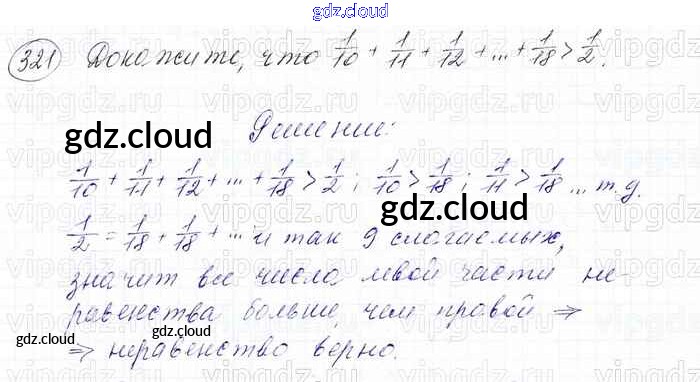 gdz.cloud
321 Докажите, что 1/10 + 1/11 + 1/12 + ... + 1/18 > 1/2.
Решение:
gdz.cloud
1/10 + 1/11 + 1/12 + ... + 1/18 > 1/2; 1/10 > 1/18; 1/11 > 1/18 ... т.д.
gdz.cloud
1/2 = 1/18 + 1/18 + ... и так 9 слагаемых,
значит все числа левой части не-
равенства больше, чем правой ⇒
gdz.cloud gdz.cloud
⇒ неравенство верно.